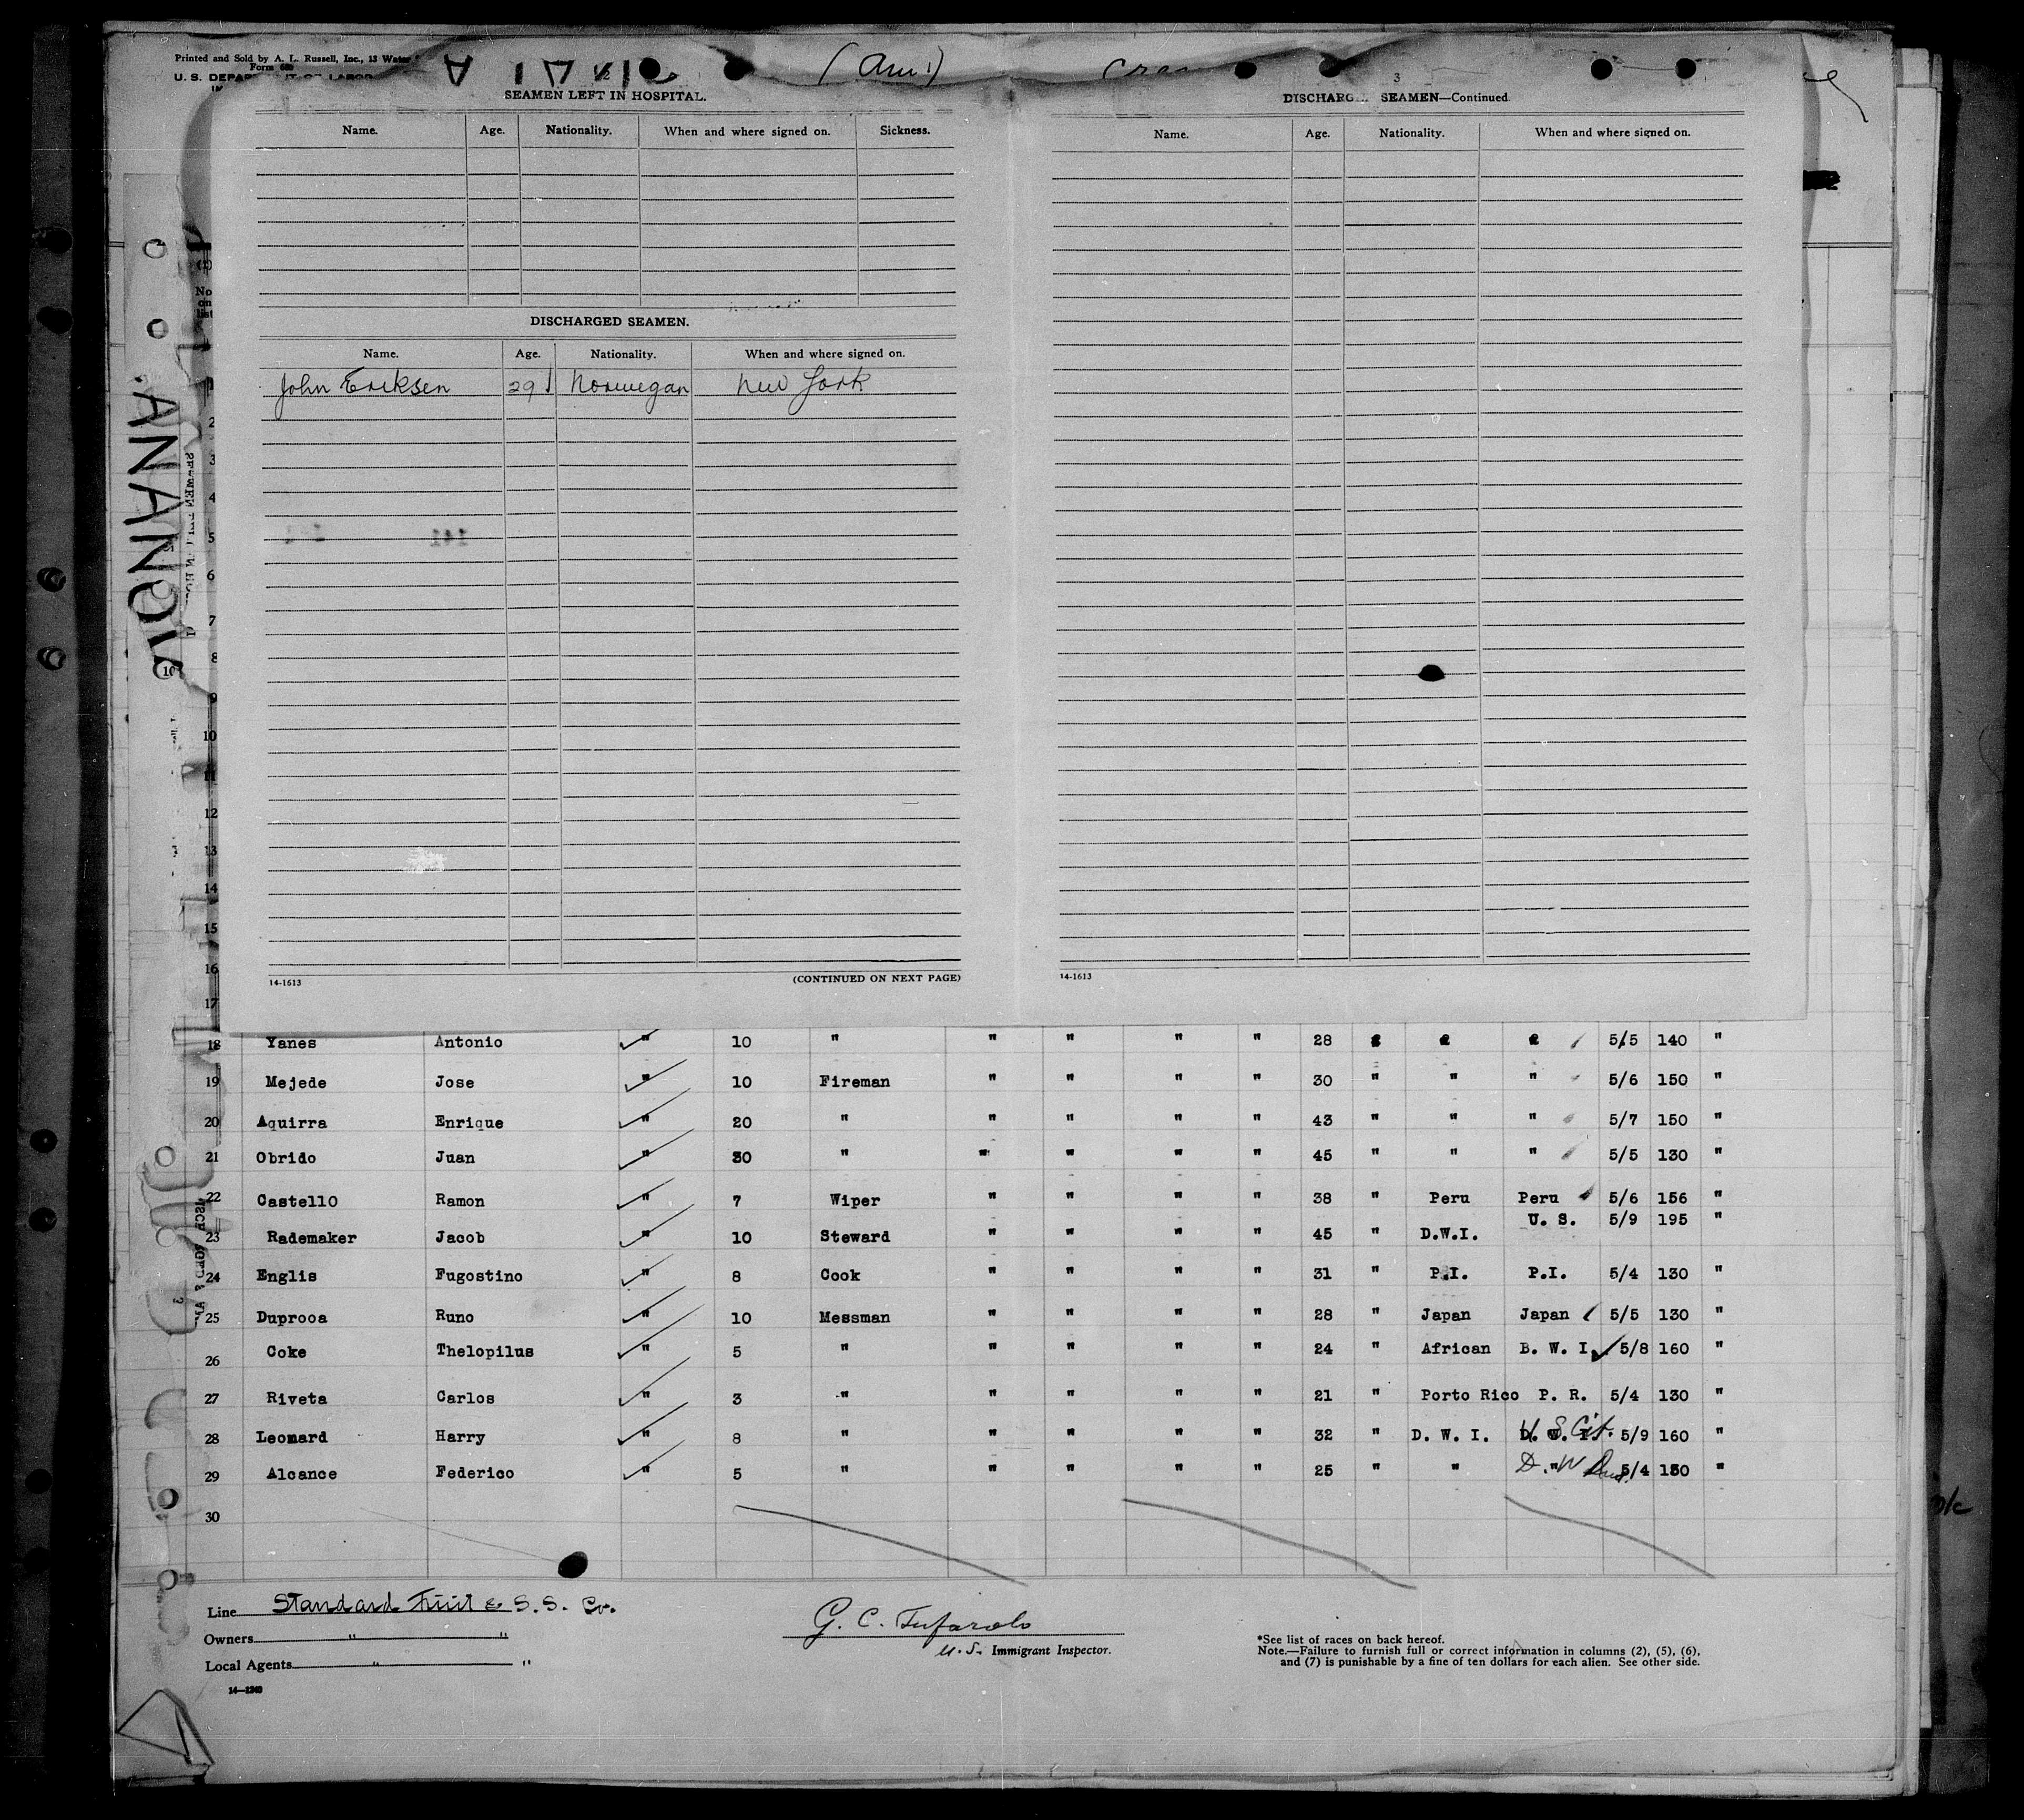 Printed and Sold by A. L. Russell, Inc., 13 Water
Form 680
U. S. DEPARTMENT OF LABOR
(Am.)
3
SEAMEN LEFT IN HOSPITAL.
Name. Age. Nationality. When and where signed on. Sickness.
DISCHARGED SEAMEN.
Name. Age. Nationality. When and where signed on.
John Eriksen 29 Norwegan New York
14-1613 (CONTINUED ON NEXT PAGE)
DISCHARGED SEAMEN—Continued
Name. Age. Nationality. When and where signed on.
14-1613
No
on
list
2
3
4
5
6
7
8
9
10
11
12
13
14
15
16
17
18 Yanes Antonio " 10 " " " " " 28 5/5 140 "
19 Mejede Jose " 10 Fireman " " " " 30 " " " 5/6 150 "
20 Aquirra Enrique " 20 " " " " " 43 " " " 5/7 150 "
21 Obrido Juan " 30 " " " " " 45 " " " 5/5 130 "
22 Castello Ramon " 7 Wiper " " " " 38 " Peru Peru 5/6 156 "
23 Rademaker Jacob " 10 Steward " " " " 45 " D.W.I. U. S. 5/9 195 "
24 Englis Fugostino " 8 Cook " " " " 31 " P.I. P.I. 5/4 130 "
25 Duprooa Runo " 10 Messman " " " " 28 " Japan Japan 5/5 130 "
26 Coke Thelopilus " 5 " " " " " 24 " African B. W. I. 5/8 160 "
27 Riveta Carlos " 3 " " " " " 21 " Porto Rico P. R. 5/4 130 "
28 Leonard Harry " 8 " " " " " 32 " D. W. I. U. S. Cit. 5/9 160 "
29 Alcance Federico " 5 " " " " " 25 " " D. W. 5/4 150 "
30
Line Standard Fruit & S. S. Co.
Owners " "
Local Agents " "
14—1240
G. C. Tufarolo
U. S. Immigrant Inspector.
*See list of races on back hereof.
Note.—Failure to furnish full or correct information in columns (2), (5), (6),
and (7) is punishable by a fine of ten dollars for each alien. See other side.